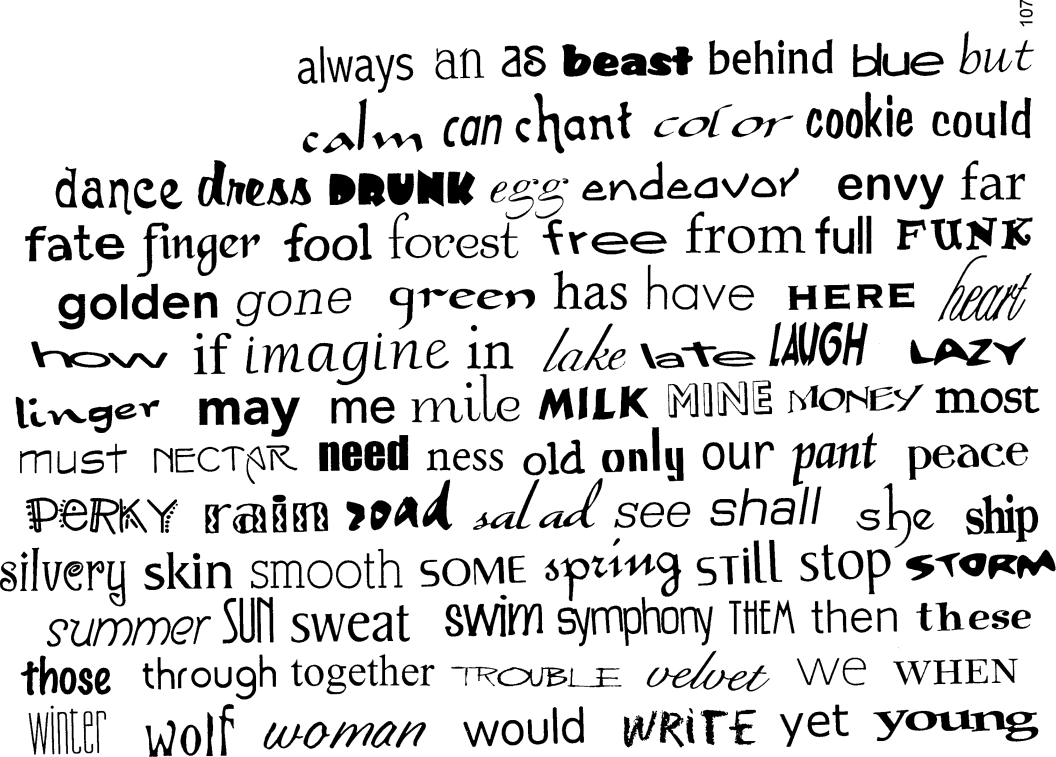 107
always an as beast behind blue but
calm can chant color cookie could
dance dress DRUNK egg endeavor envy far
fate finger fool forest free from full FUNK
golden gone green has have HERE heart
how if imagine in lake late LAUGH LAZY
linger may me mile MILK MINE MONEY most
must NECTAR need ness old only our pant peace
PERKY rain road salad see shall she ship
silvery skin smooth SOME spring STill stop STORM
summer SUN sweat swim symphony THEM then these
those through together TROUBLE velvet we WHEN
winter wolf woman would WRiTE yet young